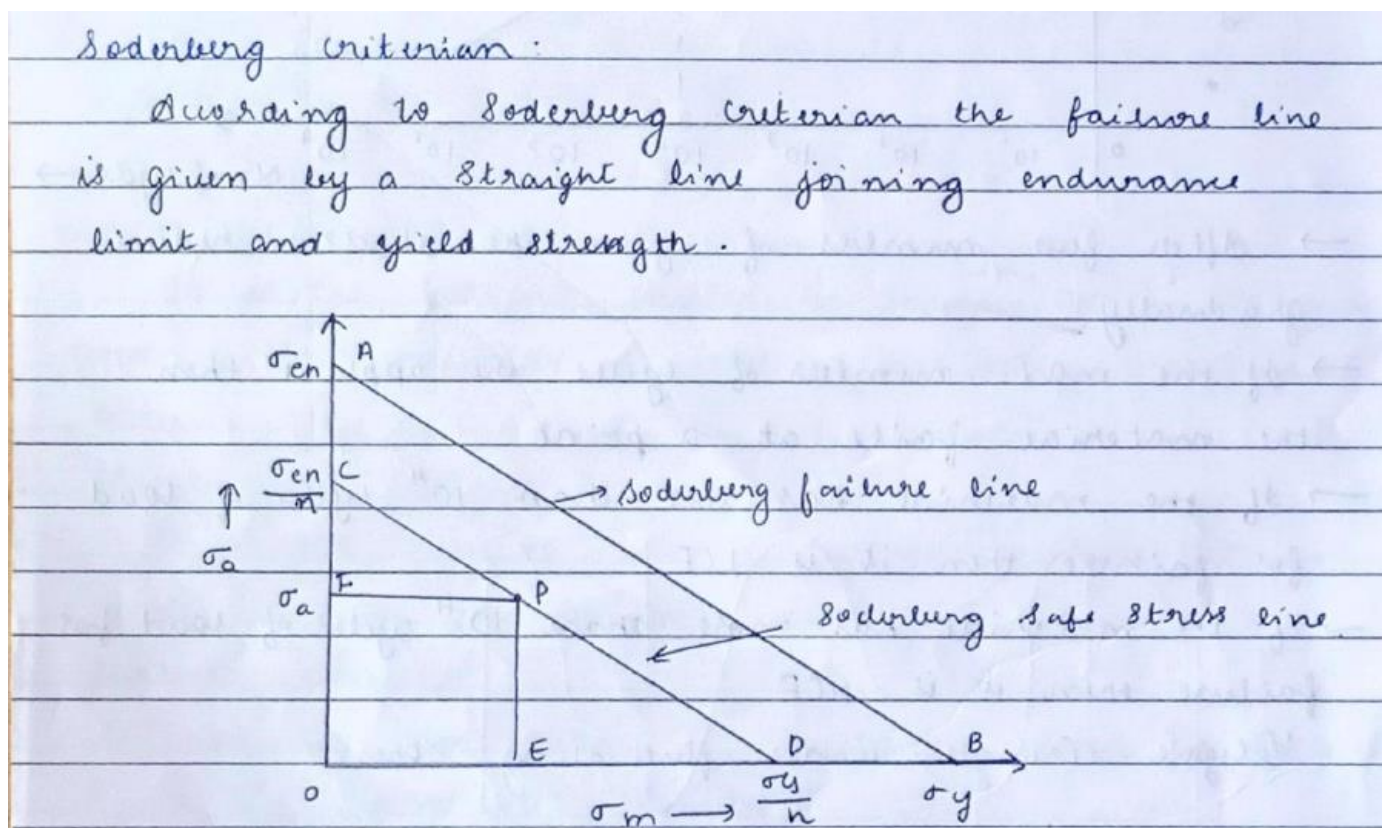 Soderberg criterian:
According to Soderberg criterian the failure line
is given by a straight line joining endurance
limit and yield strength.
A
σen
σen/n C
→ Soderberg failure line
↑
σa
F
σa
P
Soderberg safe stress line.
E D B
o
σm → σy/n σy